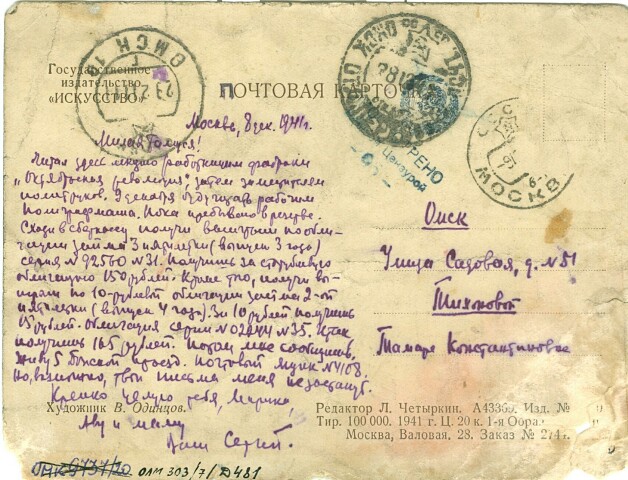 Государственное
издательство
«ИСКУССТВО»
ПОЧТОВАЯ КАРТОЧКА
ОМСК
МОСКВА
Москва, 8 дек. 1941 г.
Милая Томуся!
Читал здесь лекцию работницам фабрики
„Октябрьская революция", затем заместителям
политруков. 9 декабря буду читать рабочим
Полиграфмаша. Пока пребываю в резерве.
Сходи в сберкассу получи выигрыш по обли-
гации займа 3 пятилетки (выпуск 3 года)
серия № 92560 № 31. Получишь за сторублевую
облигацию 150 рублей. Кроме того, получи вы-
игрыш по 10-рублевой облигации займа 2-ой
пятилетки (выпуск 4 года). За 10 рублей получишь
15 рублей. Облигация серии № 02444 № 35. Итак
получишь 165 рублей. Потом мне сообщишь.
Живу 5 Донской проезд. Почтовый ящик № 4108.
Но, возможно, твои письма меня не застанут.
Крепко целую тебя, Марика,
Аву и маму
Ваш Сергей.
Омск
Улица Садовая, д. № 51
Тихоновой
Тамаре Константиновне
Художник В. Одинцов.
Редактор Л. Четыркин. А43360. Изд. №
Тир. 100 000. 1941 г. Ц. 20 к. 1-я Обра
Москва, Валовая, 28. Заказ № 274
ОМК 9737/20 ОЛМ 303/7/Д481